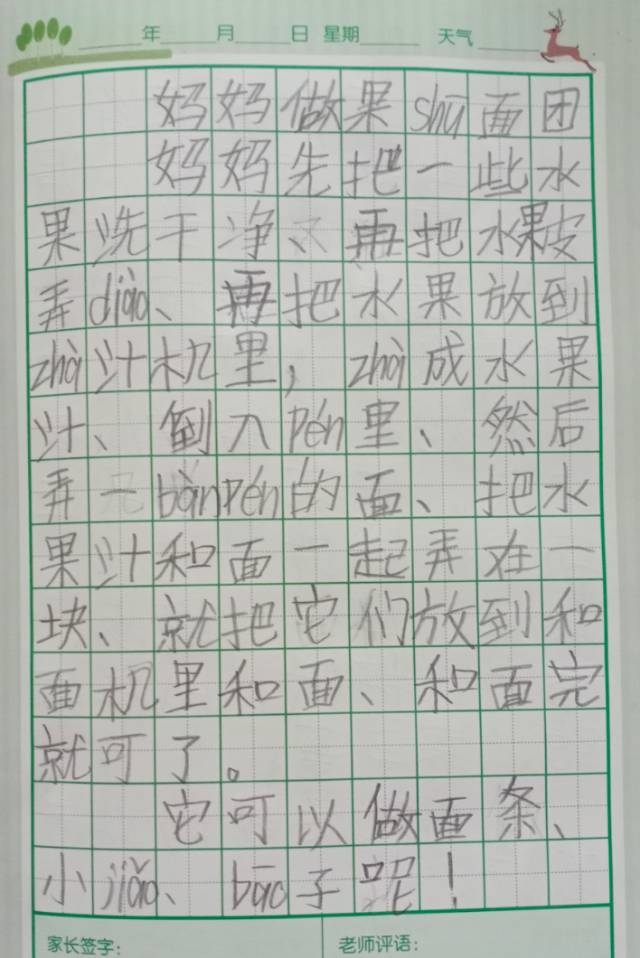 年 月 日 星期 天气
妈妈做果shū面团
妈妈先把一些水
果洗干净、再把水果皮
弄diào、再把水果放到
zhà汁机里，zhà成水果
汁、倒入pén里、然后
弄一bànpén的面、把水
果汁和面一起弄在一
块、就把它们放到和
面机里和面、和面完
就可了。
它可以做面条、
小jiǎo、bāo子呢！
家长签字： 老师评语：